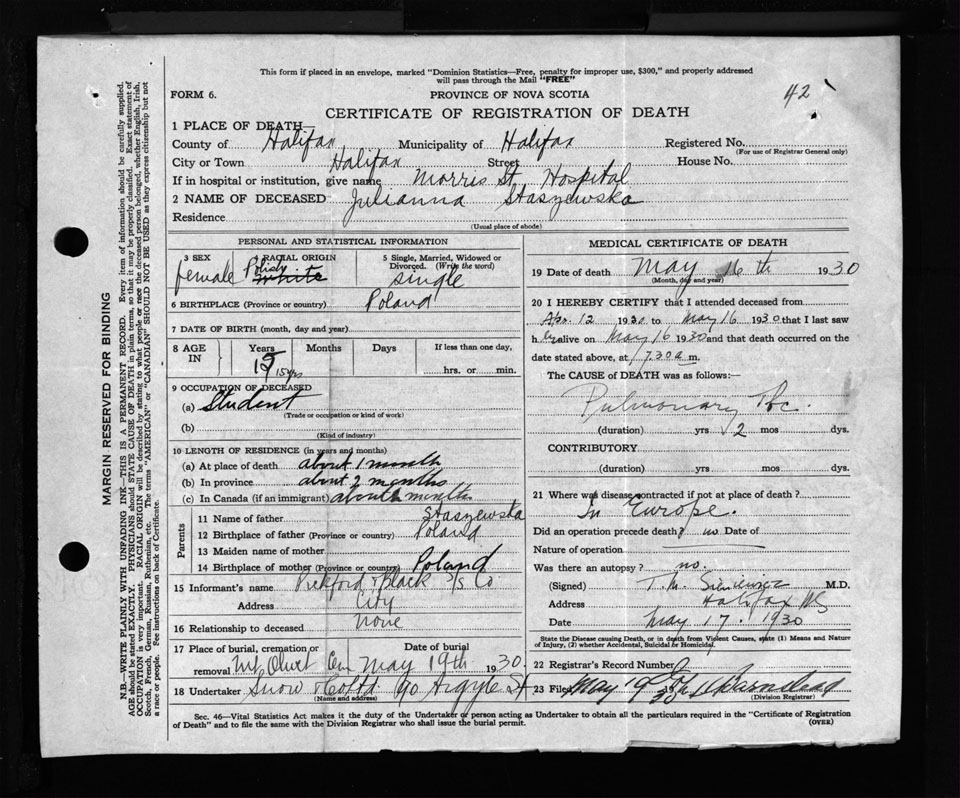 This form if placed in an envelope, marked "Dominion Statistics—Free, penalty for improper use, $300," and properly addressed
will pass through the Mail "FREE"
FORM 6.
PROVINCE OF NOVA SCOTIA
42
CERTIFICATE OF REGISTRATION OF DEATH
1 PLACE OF DEATH—
County of Halifax Municipality of Halifax Registered No.
(For use of Registrar General only)
City or Town Halifax Street House No.
If in hospital or institution, give name Morris St Hospital
2 NAME OF DECEASED Julianna Staszewska
Residence
(Usual place of abode)
PERSONAL AND STATISTICAL INFORMATION
3 SEX
female
4 RACIAL ORIGIN
Polish
White
5 Single, Married, Widowed or
Divorced. (Write the word)
Single
6 BIRTHPLACE (Province or country) Poland
7 DATE OF BIRTH (month, day and year)
8 AGE
IN
Years Months Days If less than one day,
15 yrs
hrs. or min.
9 OCCUPATION OF DECEASED
(a) Student
(Trade or occupation or kind of work)
(b)
(Kind of industry)
10 LENGTH OF RESIDENCE (in years and months)
(a) At place of death about 1 month
(b) In province about 2 months
(c) In Canada (if an immigrant) about months
Parents
11 Name of father Staszewska
12 Birthplace of father (Province or country) Poland
13 Maiden name of mother
14 Birthplace of mother (Province or country) Poland
15 Informant's name Pickford & Black S/S Co
Address City
16 Relationship to deceased None
17 Place of burial, cremation or Date of burial
removal Mt Olivet Cem May 19th 1930
18 Undertaker Snow & Co Ltd 90 Argyle St
(Name and address)
MEDICAL CERTIFICATE OF DEATH
19 Date of death May 16th 1930
(Month, day and year)
20 I HEREBY CERTIFY that I attended deceased from
Apr. 12 1930 to May 16 1930 that I last saw
her alive on May 16 1930 and that death occurred on the
date stated above, at 7.30 a m.
The CAUSE of DEATH was as follows:—
Pulmonary Tbc.
(duration) yrs 2 mos dys.
CONTRIBUTORY
(duration) yrs. mos. dys.
21 Where was disease contracted if not at place of death?
In Europe.
Did an operation precede death? no Date of
Nature of operation
Was there an autopsy? no.
(Signed) T. M. M.D.
Address Halifax NS
Date May 17. 1930
State the Disease causing Death, or in death from Violent Causes, state (1) Means and Nature
of Injury, (2) whether Accidental, Suicidal or Homicidal.
22 Registrar's Record Number
23 Filed May 19
(Division Registrar)
Sec. 46—Vital Statistics Act makes it the duty of the Undertaker or person acting as Undertaker to obtain all the particulars required in the "Certificate of Registration
of Death" and to file the same with the Division Registrar who shall issue the burial permit.
(OVER)
MARGIN RESERVED FOR BINDING
N.B.—WRITE PLAINLY WITH UNFADING INK—THIS IS A PERMANENT RECORD. Every item of information should be carefully supplied.
AGE should be stated EXACTLY. PHYSICIANS should STATE CAUSE OF DEATH in plain terms, so that it may be properly classified. Exact statement of
OCCUPATION is very important. RACIAL ORIGIN will be described by stating to what people or race the deceased person belonged, whether English, Irish,
Scotch, French, German, Russian, Ruthenian, etc. The terms "AMERICAN" or "CANADIAN" SHOULD NOT BE USED as they express citizenship but not
a race or people. Fee instructions on back of Certificate.